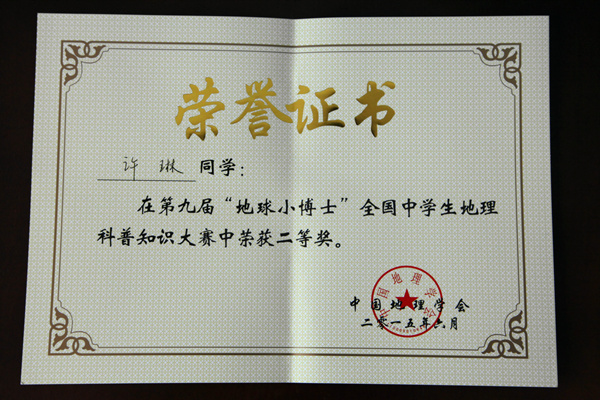 荣誉证书
许琳 同学：
在第九届“地球小博士”全国中学生地理
科普知识大赛中荣获二等奖。
中国地理学会
中国地理学会
二零一五年六月